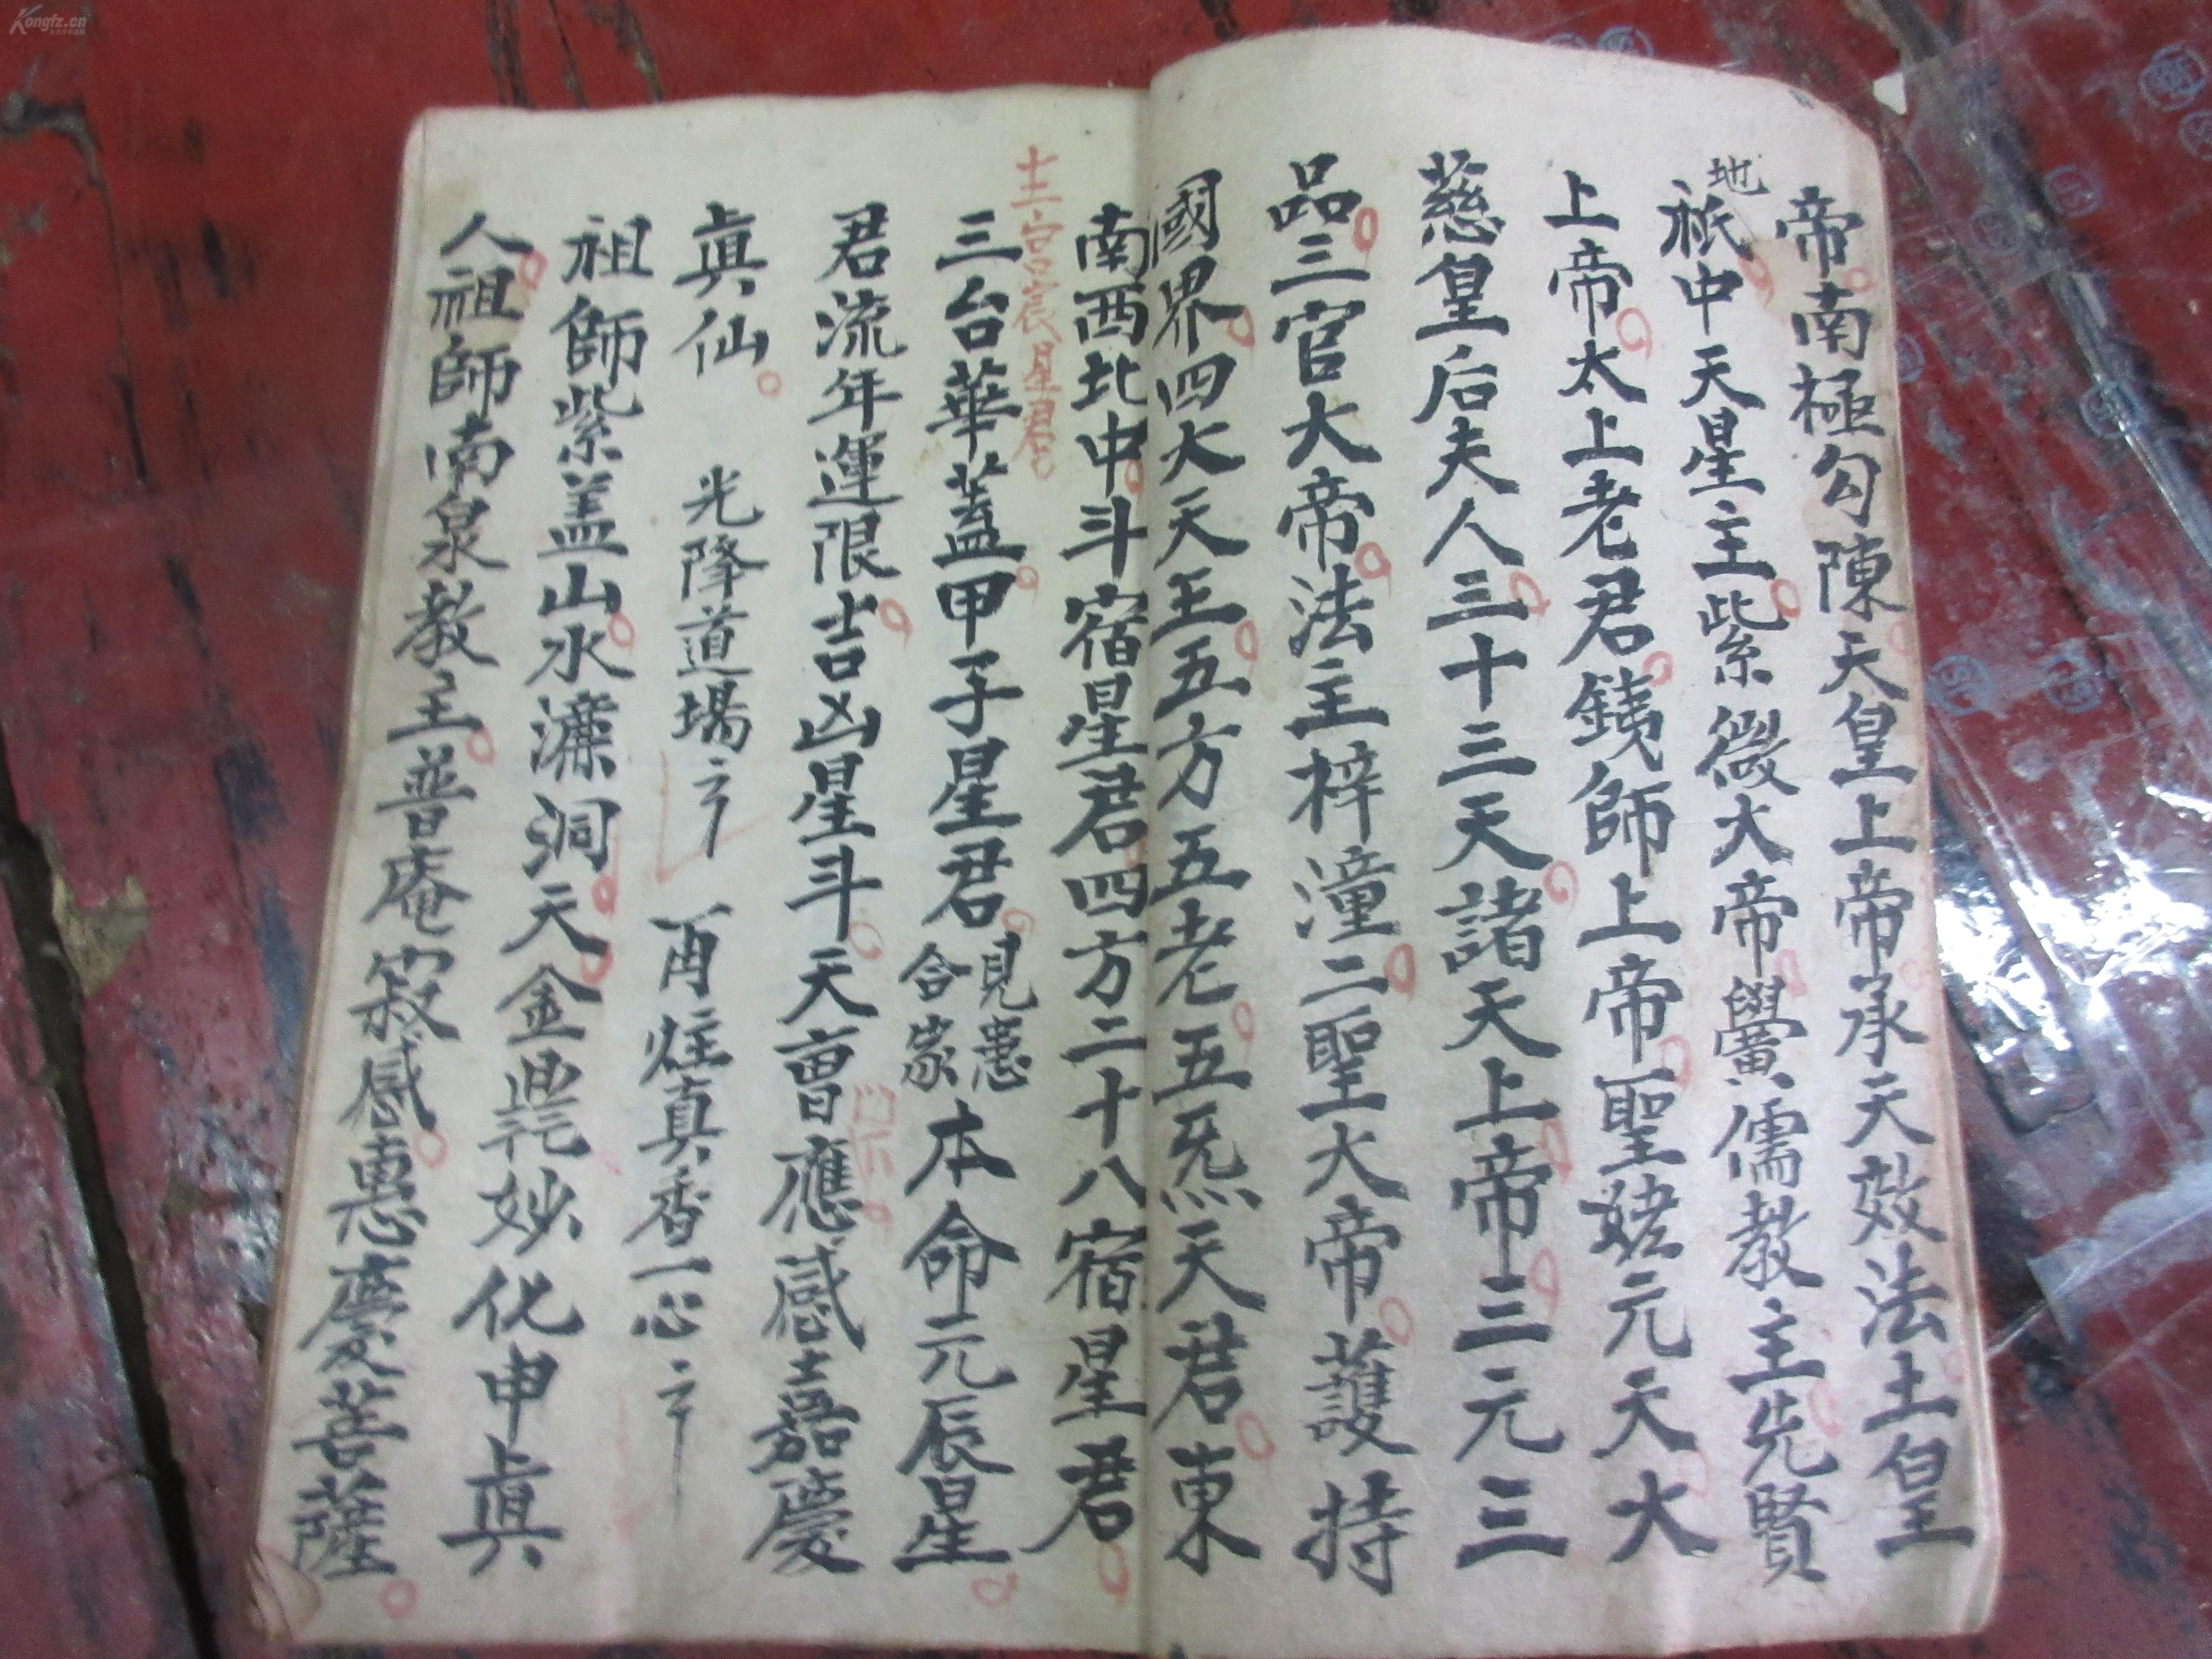 帝南極勾陳天皇上帝承天效法土皇
地
祇中天星主紫微大帝黌儒教主先賢
上帝太上老君錢師上帝聖姥元天大
慈皇后夫人三十三天諸天上帝三元三
品三官大帝法主梓潼二聖大帝護持
國界四大天王五方五老五炁天君東
南西北中斗宿星君四方二十八宿星君
十二宫宸星君
三台華蓋甲子星君見患合家本命元辰星
君流年運限吉凶星斗天曹應感嘉慶
真仙 光降道場 再炷真香一心
祖師紫盖山水濂洞天金鼎妙化申真
人祖師南泉教主普庵寂感惠慶菩薩
Kongfz.cn